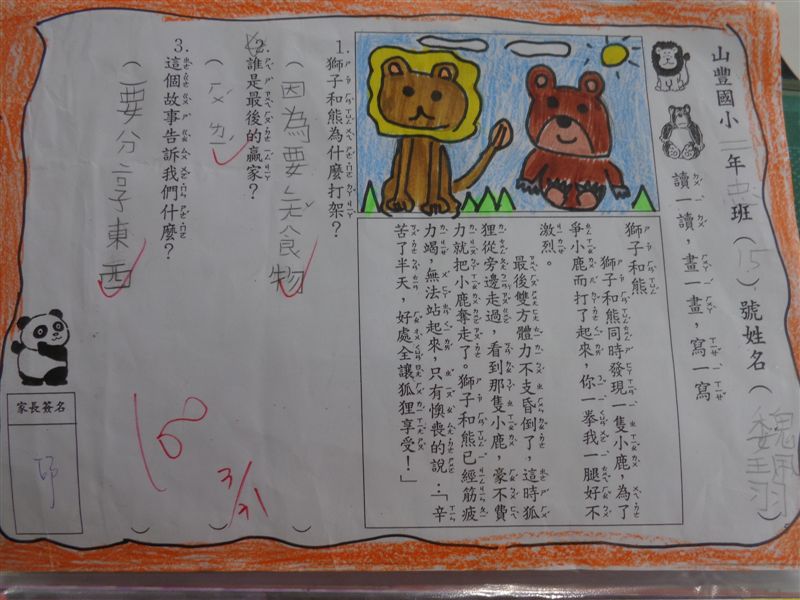 山豐國小二年四班（15）號姓名（魏珮羽）
讀一讀，畫一畫，寫一寫
獅子和熊
獅子和熊同時發現一隻小鹿，為了
爭小鹿而打了起來，你一拳我一腿好不
激烈。
最後雙方體力不支昏倒了，這時狐
狸從旁邊走過，看到那隻小鹿，豪不費
力就把小鹿奪走了。獅子和熊已經筋疲
力竭，無法站起來，只有懊喪的說：「辛
苦了半天，好處全讓狐狸享受！」
1.獅子和熊為什麼打架？
（因為要ㄑㄧㄤˇ食物）
2.誰是最後的贏家？
（ㄏㄨˊㄌㄧˊ）
3.這個故事告訴我們什麼？
（要分享東西）
100
3/21
家長簽名